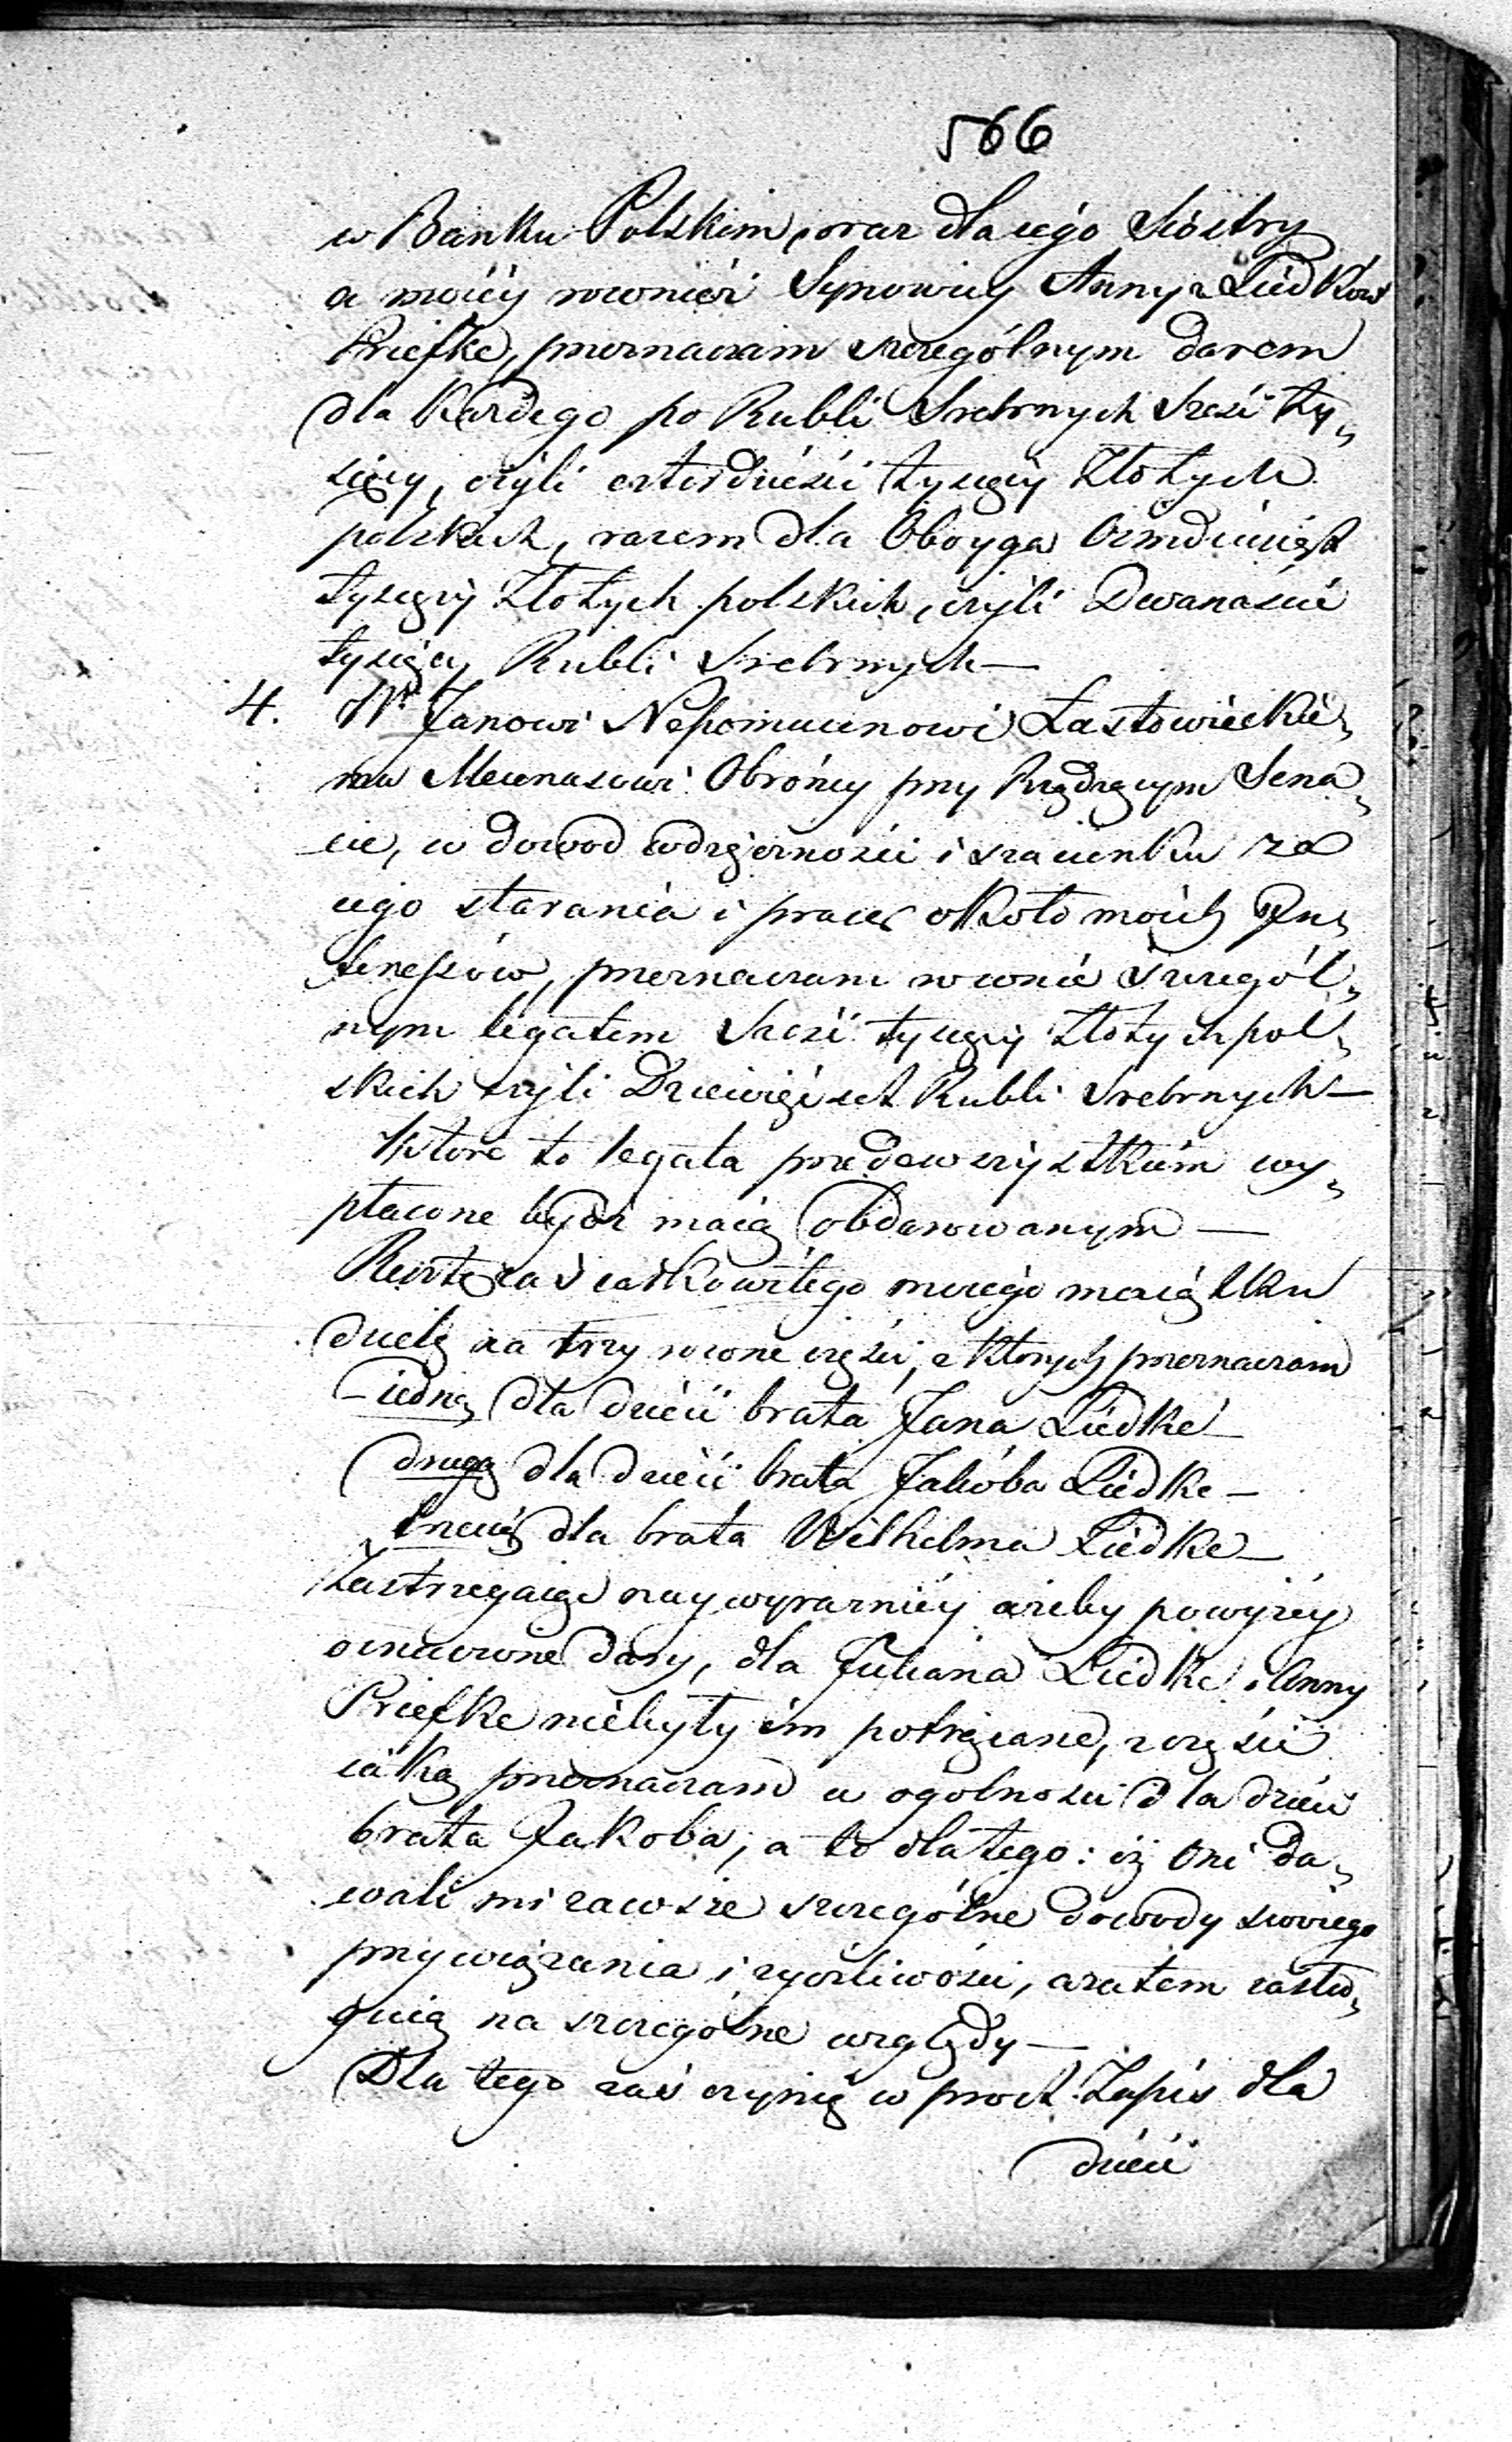 566
w Banku Polskim, oraz dla iego Siostry
a moiéy rownież Synowicy Anny z Liedków
Priefke, przeznaczam szczególnym darem
dla każdego po Rubli Srebrnych sześć ty„
sięcy, czyli czterdzieści tysięcy Złotych
polskich, razem dla Oboyga Ośmdziesiąt
tysięcy Złotych polskich, czyli Dwanaście
tysięcy Rubli Srebrnych —
4. Wr Janowi Nepomucenowi Łastowieckie„
mu Mecenasowi Obrońcy przy Rządzącym Sena„
cie, w dowod wdzięczności i szacunku za
iego starania i prace około moich In„
teressów, przeznaczam rownie szczegól„
nym legatem Sześć tysięcy Złotych pol„
skich czyli Dziewięćset Rubli Srebrnych —
Które to legata przedewszystkiém wy„
płacone bydź maią obdarowanym —
Resztę zaś całkowitego moiego maiątku
dzielę na trzy rowne części, z których przeznaczam
– iedną dla dzieci brata Jana Liedke –
drugą dla dzieci brata Jakóba Liedke –
trzecią dla brata Wilhelma Liedke –
Zastrzegaiąc naywyraźniéy ażeby powyżéy
oznaczone dary, dla Juliana Liedke i Anny
Priefke niebyły im potrącane, z części
iaką przeznaczam w ogolności dla dzieci
brata Jakoba, a to dla tego: iż Oni da„
wali mi zawsze szczególne dowody swoiego
przywiązania i życzliwości, a zatem zasłu„
guią na szczególne względy —
Dla tego zaś czynię w prost Zapis dla
dzieci